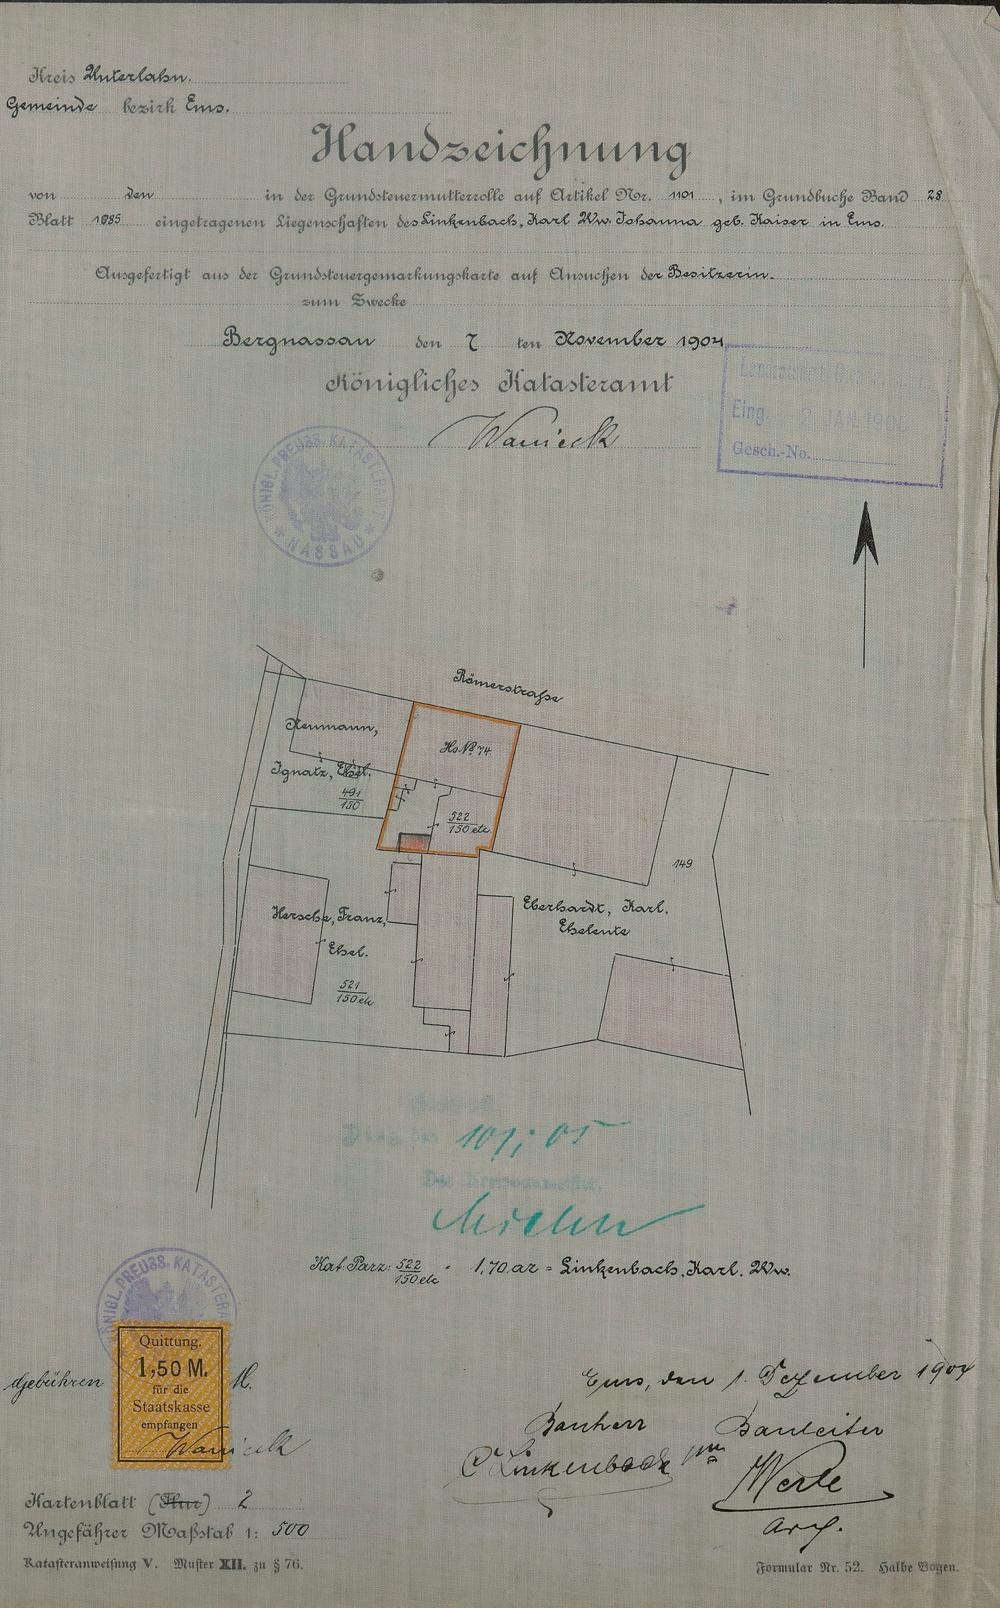 Kreis Unterlahn.
Gemeinde bezirk Ems.
Handzeichnung
von den in der Grundsteuermutterrolle auf Artikel Nr. 1101, im Grundbuche Band 28
Blatt 1085 eingetragenen Liegenschaften des Linkenbach, Karl Ww. Johanna geb. Kaiser in Ems.
Ausgefertigt aus der Grundsteuergemarkungskarte auf Ansuchen der Besitzerin.
zum Zwecke
Bergnassau den 7 ten November 1904
Königliches Katasteramt
Wanieck
Eing. 2 JAN. 190
Gesch.-No.
KÖNIGL. PREUSS. KATASTERAMT
* NASSAU *
Römerstraße
Neumann,
Ignatz, Ehel.
491/150
Hs. No. 74.
522/150 etc.
149
Hersche, Franz,
Ehel.
521/150 etc
Eberhardt, Karl.
Eheleute
10/1 05
Kat. Parz: 522/150 etc = 1,70 ar = Linkenbach, Karl. Ww.
KÖNIGL. PREUSS. KATASTERA
Quittung.
1,50 M.
für die
Staatskasse
empfangen
Wanieck
Gebühren M.
Ems, den 1. Dezember 1904
Bauherr Bauleiter
C Linkenbach Werle
Arch.
Kartenblatt (Flur) 2
Ungefährer Maßstab 1: 500
Katasteranweisung V. Muster XII. zu § 76.
Formular Nr. 52. Halbe Bogen.